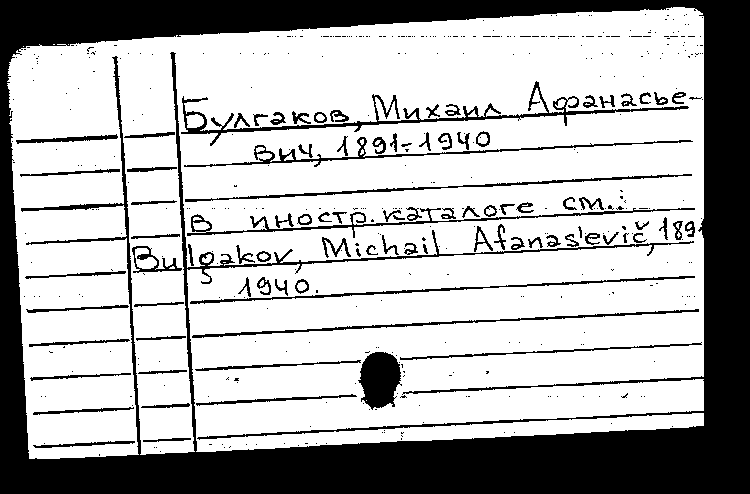 Булгаков, Михаил Афанасье-
вич, 1891-1940
в иностр. каталоге см.:
Bulgakov, Michail Afanas'evič, 1891
1940.